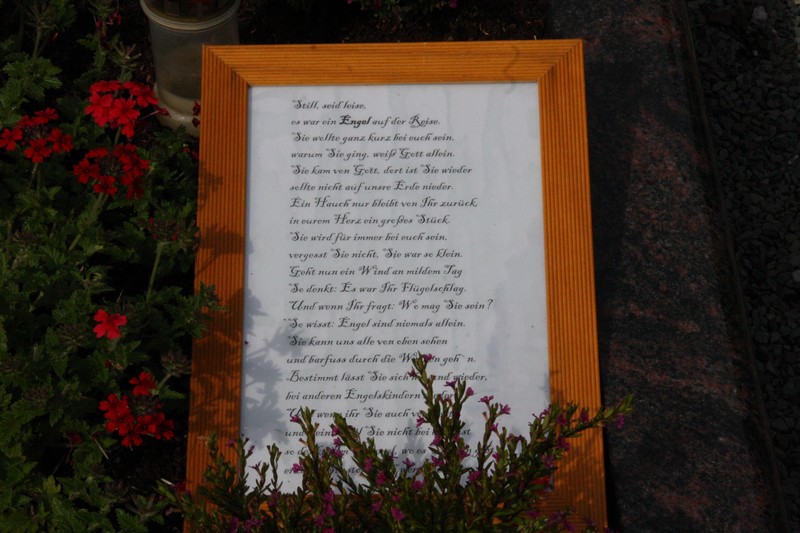 Still, seid leise,
es war ein Engel auf der Reise.
Sie wollte ganz kurz bei euch sein,
warum Sie ging, weiß Gott allein.
Sie kam von Gott, dort ist Sie wieder
sollte nicht auf unsre Erde nieder.
Ein Hauch nur bleibt von Ihr zurück
in eurem Herz ein großes Stück
Sie wird für immer bei euch sein,
vergesst Sie nicht, Sie war so klein.
Geht nun ein Wind an mildem Tag
So denkt: Es war Ihr Flügelschlag.
Und wenn Ihr fragt: Wo mag Sie sein?
So wisst: Engel sind niemals allein.
Sie kann uns alle von oben sehen
und barfuss durch die geh`n.
Bestimmt lässt Sie sich und wieder,
bei anderen Engelskindern
wenn ihr Sie auch
und Sie nicht bei
so wo es